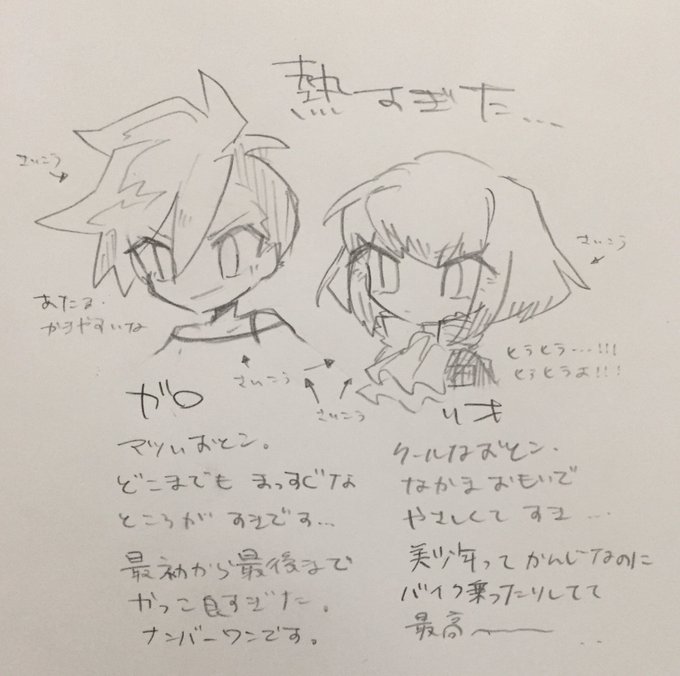 熱すぎた…
さいこう
さいこう
あたま、
かきやすいな
さいこう
さいこう
とうとう…!!!
とうとうよ!!!
ガロ
アツいおとこ。
どこまでも まっすぐな
ところが すきです…
最初から最後まで
かっこ良すぎた。
ナンバーワンです。
リオ
クールなおとこ。
なかまおもいで
やさしくて すき…
美少年って かんじなのに
バイク乗ったりしてて
最高〜